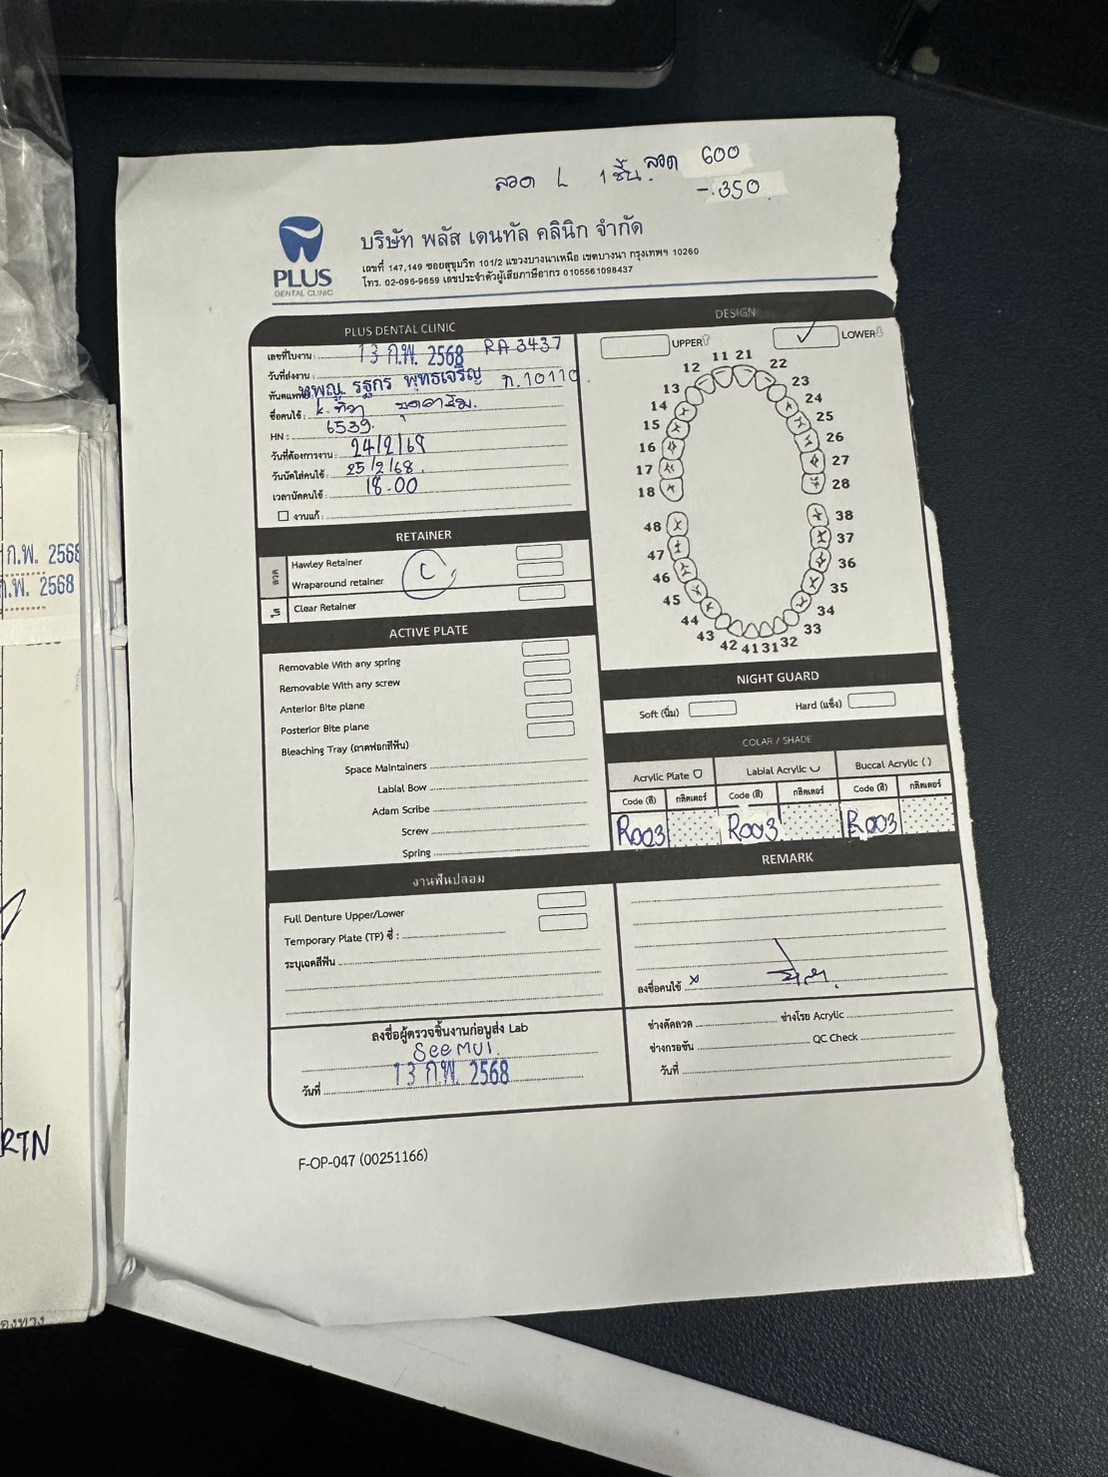 ลวด L 1 ชิ้น. ลวด 600
-.350
บริษัท พลัส เดนทัล คลินิก จำกัด
เลขที่ 147,149 ซอยสุขุมวิท 101/2 แขวงบางนาเหนือ เขตบางนา กรุงเทพฯ 10260
โทร. 02-096-9659 เลขประจำตัวผู้เสียภาษีอากร 0105561098437
PLUS
DENTAL CLINIC
PLUS DENTAL CLINIC
เลขที่ใบงาน : 13 ก.พ. 2568 RA 3437
วันที่ส่งงาน :
ทันตแพทย์ : ทพญ. รฐกร พุทธเจริญ ท.10110
ชื่อคนไข้ :
HN : 6539.
วันที่ต้องการงาน : 24/2/68
วันนัดใส่คนไข้ : 25/2/68.
เวลานัดคนไข้ : 18.00
งานแก้ :
RETAINER
ลวด
Hawley Retainer
Wraparound retainer C
ใส
Clear Retainer
ACTIVE PLATE
Removable With any spring
Removable With any screw
Anterior Bite plane
Posterior Bite plane
Bleaching Tray (ถาดฟอกสีฟัน)
Space Maintainers
Lablal Bow
Adam Scribe
Screw
Spring
งานฟันปลอม
Full Denture Upper/Lower
Temporary Plate (TP) ซี่ :
ระบุเฉดสีฟัน
ลงชื่อผู้ตรวจชิ้นงานก่อนส่ง Lab
See Mui.
วันที่ 13 ก.พ. 2568
DESIGN
UPPER LOWER
11 21
12 22
13 23
14 24
15 25
16 26
17 27
18 28
48 38
47 37
46 36
45 35
44 34
43 33
42 41 31 32
NIGHT GUARD
Soft (นิ่ม) Hard (แข็ง)
COLAR / SHADE
Acrylic Plate Labial Acrylic Buccal Acrylic ( )
Code (สี) กลิตเตอร์ Code (สี) กลิตเตอร์ Code (สี) กลิตเตอร์
R003 R003 R003
REMARK
ลงชื่อคนไข้ x
ช่างดัดลวด ช่างโรย Acrylic
ช่างกรอขัด QC Check
วันที่
F-OP-047 (00251166)
ก.พ. 2568
ก.พ. 2568
RTN